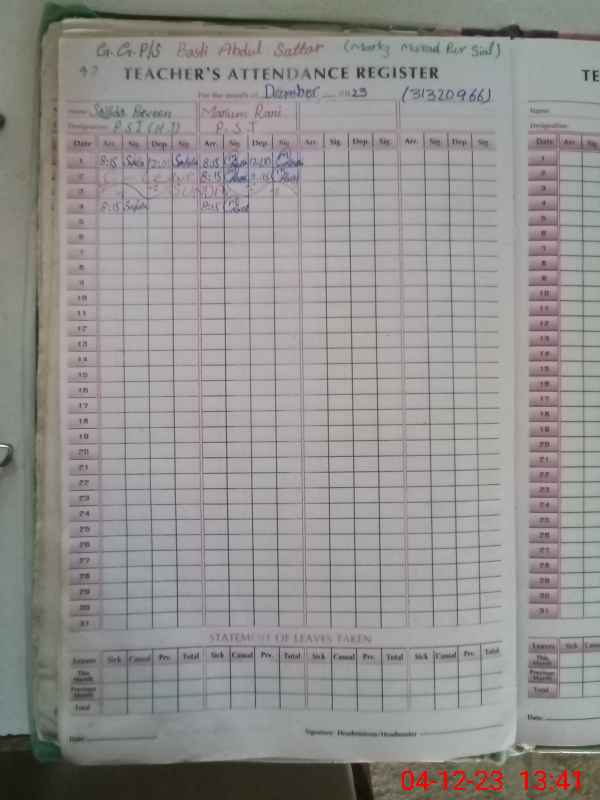 G.G.P/S Basti Abdul Sattar (Marky Murad Pur Sial)
TEACHER'S ATTENDANCE REGISTER
TE
For the month of December 2023 (31320966)
Name Mariam Rani
Designation P.S.T (H.T) P.S.T
Name
Designation
Date Arr. Sig. Dep. Sig. Arr. Sig. Dep. Sig. Arr. Sig. Dep. Sig. Arr. Sig. Dep. Sig.
Date Arr. Sig.
1 8:15 8:15
2 8:15
3 SUNDAY
4 8:15 8:15
5
6
7
8
9
10
11
12
13
14
15
16
17
18
19
20
21
22
23
24
25
26
27
28
29
30
31
1
2
3
4
5
6
7
8
9
10
11
12
13
14
15
16
17
18
19
20
21
22
23
24
25
26
27
28
29
30
31
STATEMENT OF LEAVES TAKEN
Leaves Sick Casual Prv. Total Sick Casual Prv. Total Sick Casual Prv. Total Sick Casual Prv. Total
This Month
Previous Month
Total
Leaves Sick
This Month
Previous Month
Total
Date
Signature Headmistress/Headmaster
Date
04-12-23 13:41